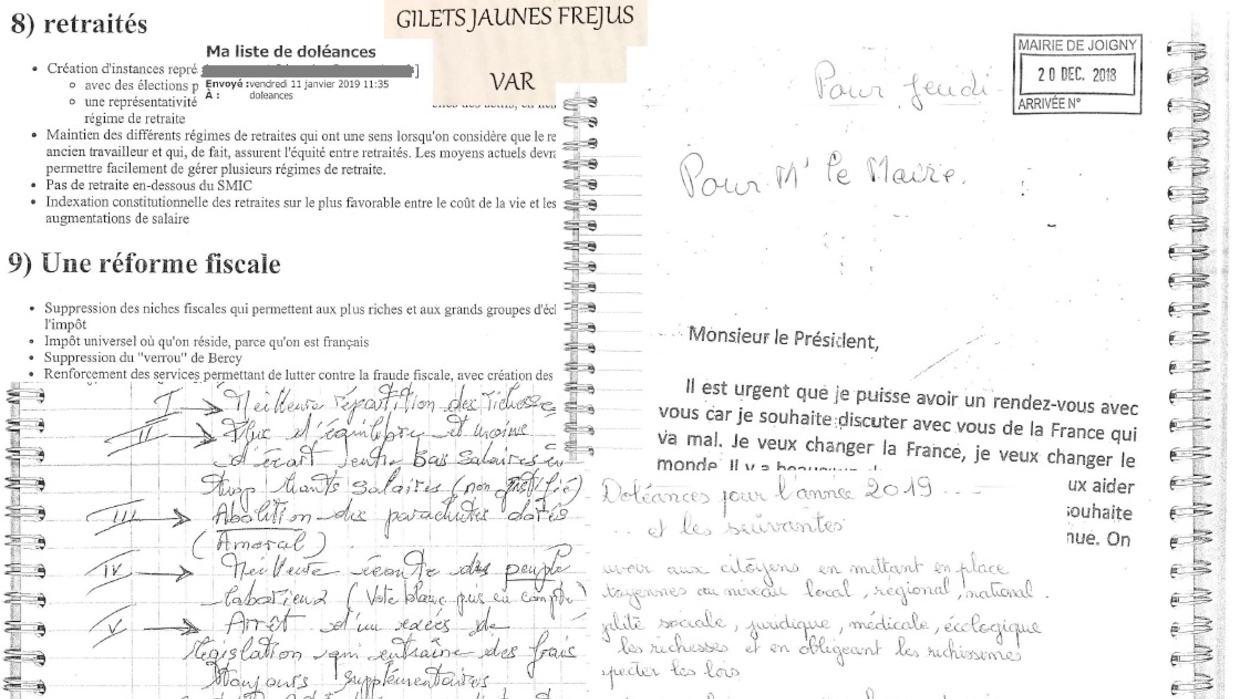 8) retraités
Création d'instances repré
avec des élections p
une représentativité
régime de retraite
Maintien des différents régimes de retraites qui ont une sens lorsqu'on considère que le re
ancien travailleur et qui, de fait, assurent l'équité entre retraités. Les moyens actuels devra
permettre facilement de gérer plusieurs régimes de retraite.
Pas de retraite en-dessous du SMIC
Indexation constitutionnelle des retraites sur le plus favorable entre le coût de la vie et les
augmentations de salaire
9) Une réforme fiscale
Suppression des niches fiscales qui permettent aux plus riches et aux grands groupes d'écl
l'impôt
Impôt universel où qu'on réside, parce qu'on est français
Suppression du "verrou" de Bercy
Renforcement des services permettant de lutter contre la fraude fiscale, avec création des
Ma liste de doléances
Envoyé :vendredi 11 janvier 2019 11:35
À : doleances
GILETS JAUNES FREJUS
VAR
I → Meilleure répartition des richesses
II → Plus d'équilibre et moins
d'écart entre bas salaires en
trop hauts salaires (non justifié)
III → Abolition des parachutes dorés
(Amoral)
IV → Meilleure écoute des peuple
laborieux (Vote blanc pris en compte)
V → Arrêt d'un excès de
législation qui entraîne des frais
toujours supplémentaires
Pour Jeudi
MAIRIE DE JOIGNY
20 DEC. 2018
ARRIVÉE N°
Pour Mr le Maire.
Monsieur le Président,
Il est urgent que je puisse avoir un rendez-vous avec
vous car je souhaite discuter avec vous de la France qui
va mal. Je veux changer la France, je veux changer le
monde. Il y a
ux aider
souhaite
nue. On
Doléances pour l'année 2019 ...
... et les suivantes
uvoir aux citoyens en mettant en place
toyennes au niveau local, régional, national.
alité sociale, juridique, médicale, écologique
les richesses et en obligeant les richissimes
specter les lois